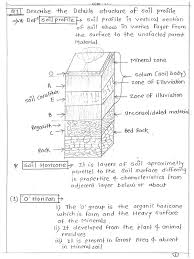 Q1) Describe the Details structure of soil profile
* Def Soil profile :- Soil profile is vertical section
of soil show to varies layer from
the surface to the unaffected parent
Material.
Mineral zone
Solum (soil body)
Zone of Eluviation
Zone of Illuviation
Unconsolidated material
Bed Rock
O
A
E
B
C
R
Regolith
* Soil Horizons :- It is layers of soil aproximetly
parallel to the soil surface differing
in properties & characteristics from
adjacent layer below or about
(1) 'O' Horizon :-
i) The 'O' group is the organic horizons
which is form and the Heavy surface
of the Minerals
ii) It developed from the plant & animal
residues
iii) It is present in forest Area & absent
in mineral soil